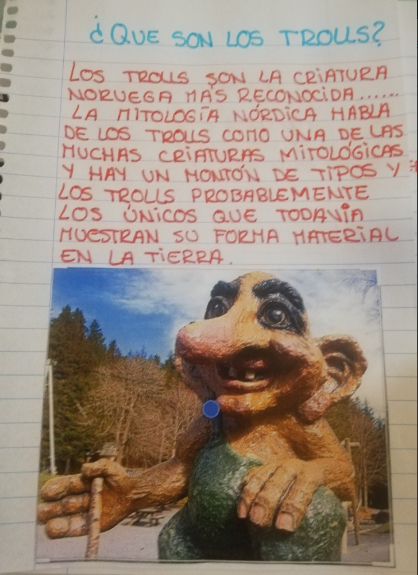 ¿QUE SON LOS TROLLS?
LOS TROLLS SON LA CRIATURA
NORUEGA MÁS RECONOCIDA......
LA MITOLOGÍA NÓRDICA HABLA
DE LOS TROLLS COMO UNA DE LAS
MUCHAS CRIATURAS MITOLÓGICAS
Y HAY UN MONTÓN DE TIPOS Y
LOS TROLLS PROBABLEMENTE
LOS ÚNICOS QUE TODAVÍA
MUESTRAN SU FORMA MATERIAL
EN LA TIERRA.